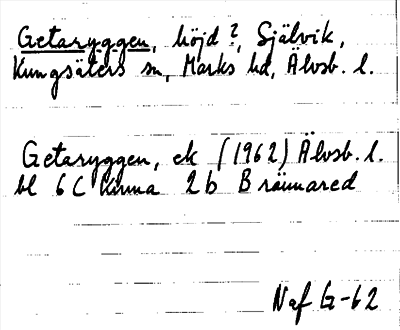 Getaryggen, höjd?, Självik,
Kungsäters sn, Marks hd, Älvsb. l.
Getaryggen, ek (1962) Älvsb. l.
bl 6 C Kinna 2b Brännared
Naf G-62